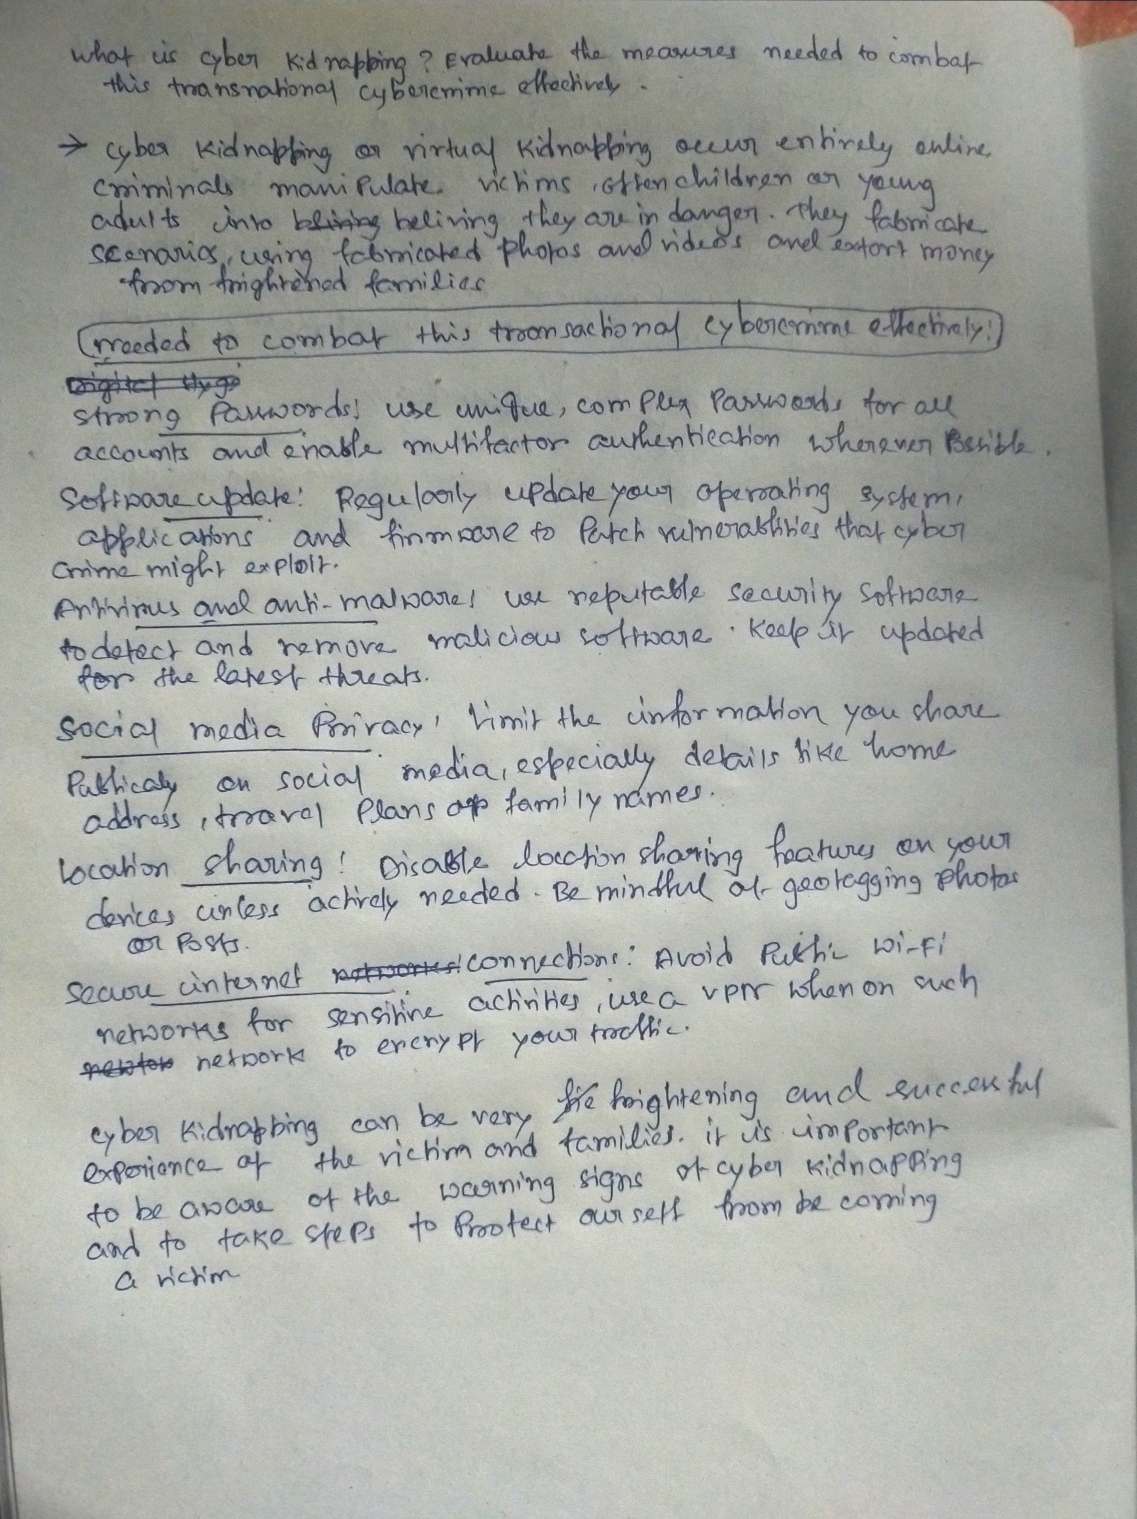 What is cyber kidnapping? Evaluate the measures needed to combat
this transnational cybercrime effectively.
→ cyber kidnapping or virtual kidnapping occur entirely online,
criminals manipulate victims, often children or young
adults into beliving they are in danger. They fabricate
scenarios, using fabricated photos and videos and extort money
from frightened families
needed to combat this transactional cybercrime effectively:
Strong Passwords: use unique, complex Passwords for all
accounts and enable multifactor authentication wherever Possible.
Software update: Regularly update your operating system,
applications and firmware to Patch vulnerabilities that cyber
crime might exploit.
Antivirus and anti-malware: use reputable security software
to detect and remove malicious software. Keep it updated
for the latest threats.
Social media Privacy: Limit the information you share
Publicaly on social media, especially details like home
address, travel Plans or family names.
Location sharing: Disable location sharing features on your
devices unless actively needed. Be mindful of geotagging photos
or Posts.
Secure internet connections: Avoid Public Wi-Fi
networks for sensitive activities, use a VPN when on such
network to encrypt your traffic.
cyber kidnapping can be very frightening and successful
experience of the victim and families. it is important
to be aware of the warning signs of cyber kidnapping
and to take steps to Protect our self from be coming
a victim